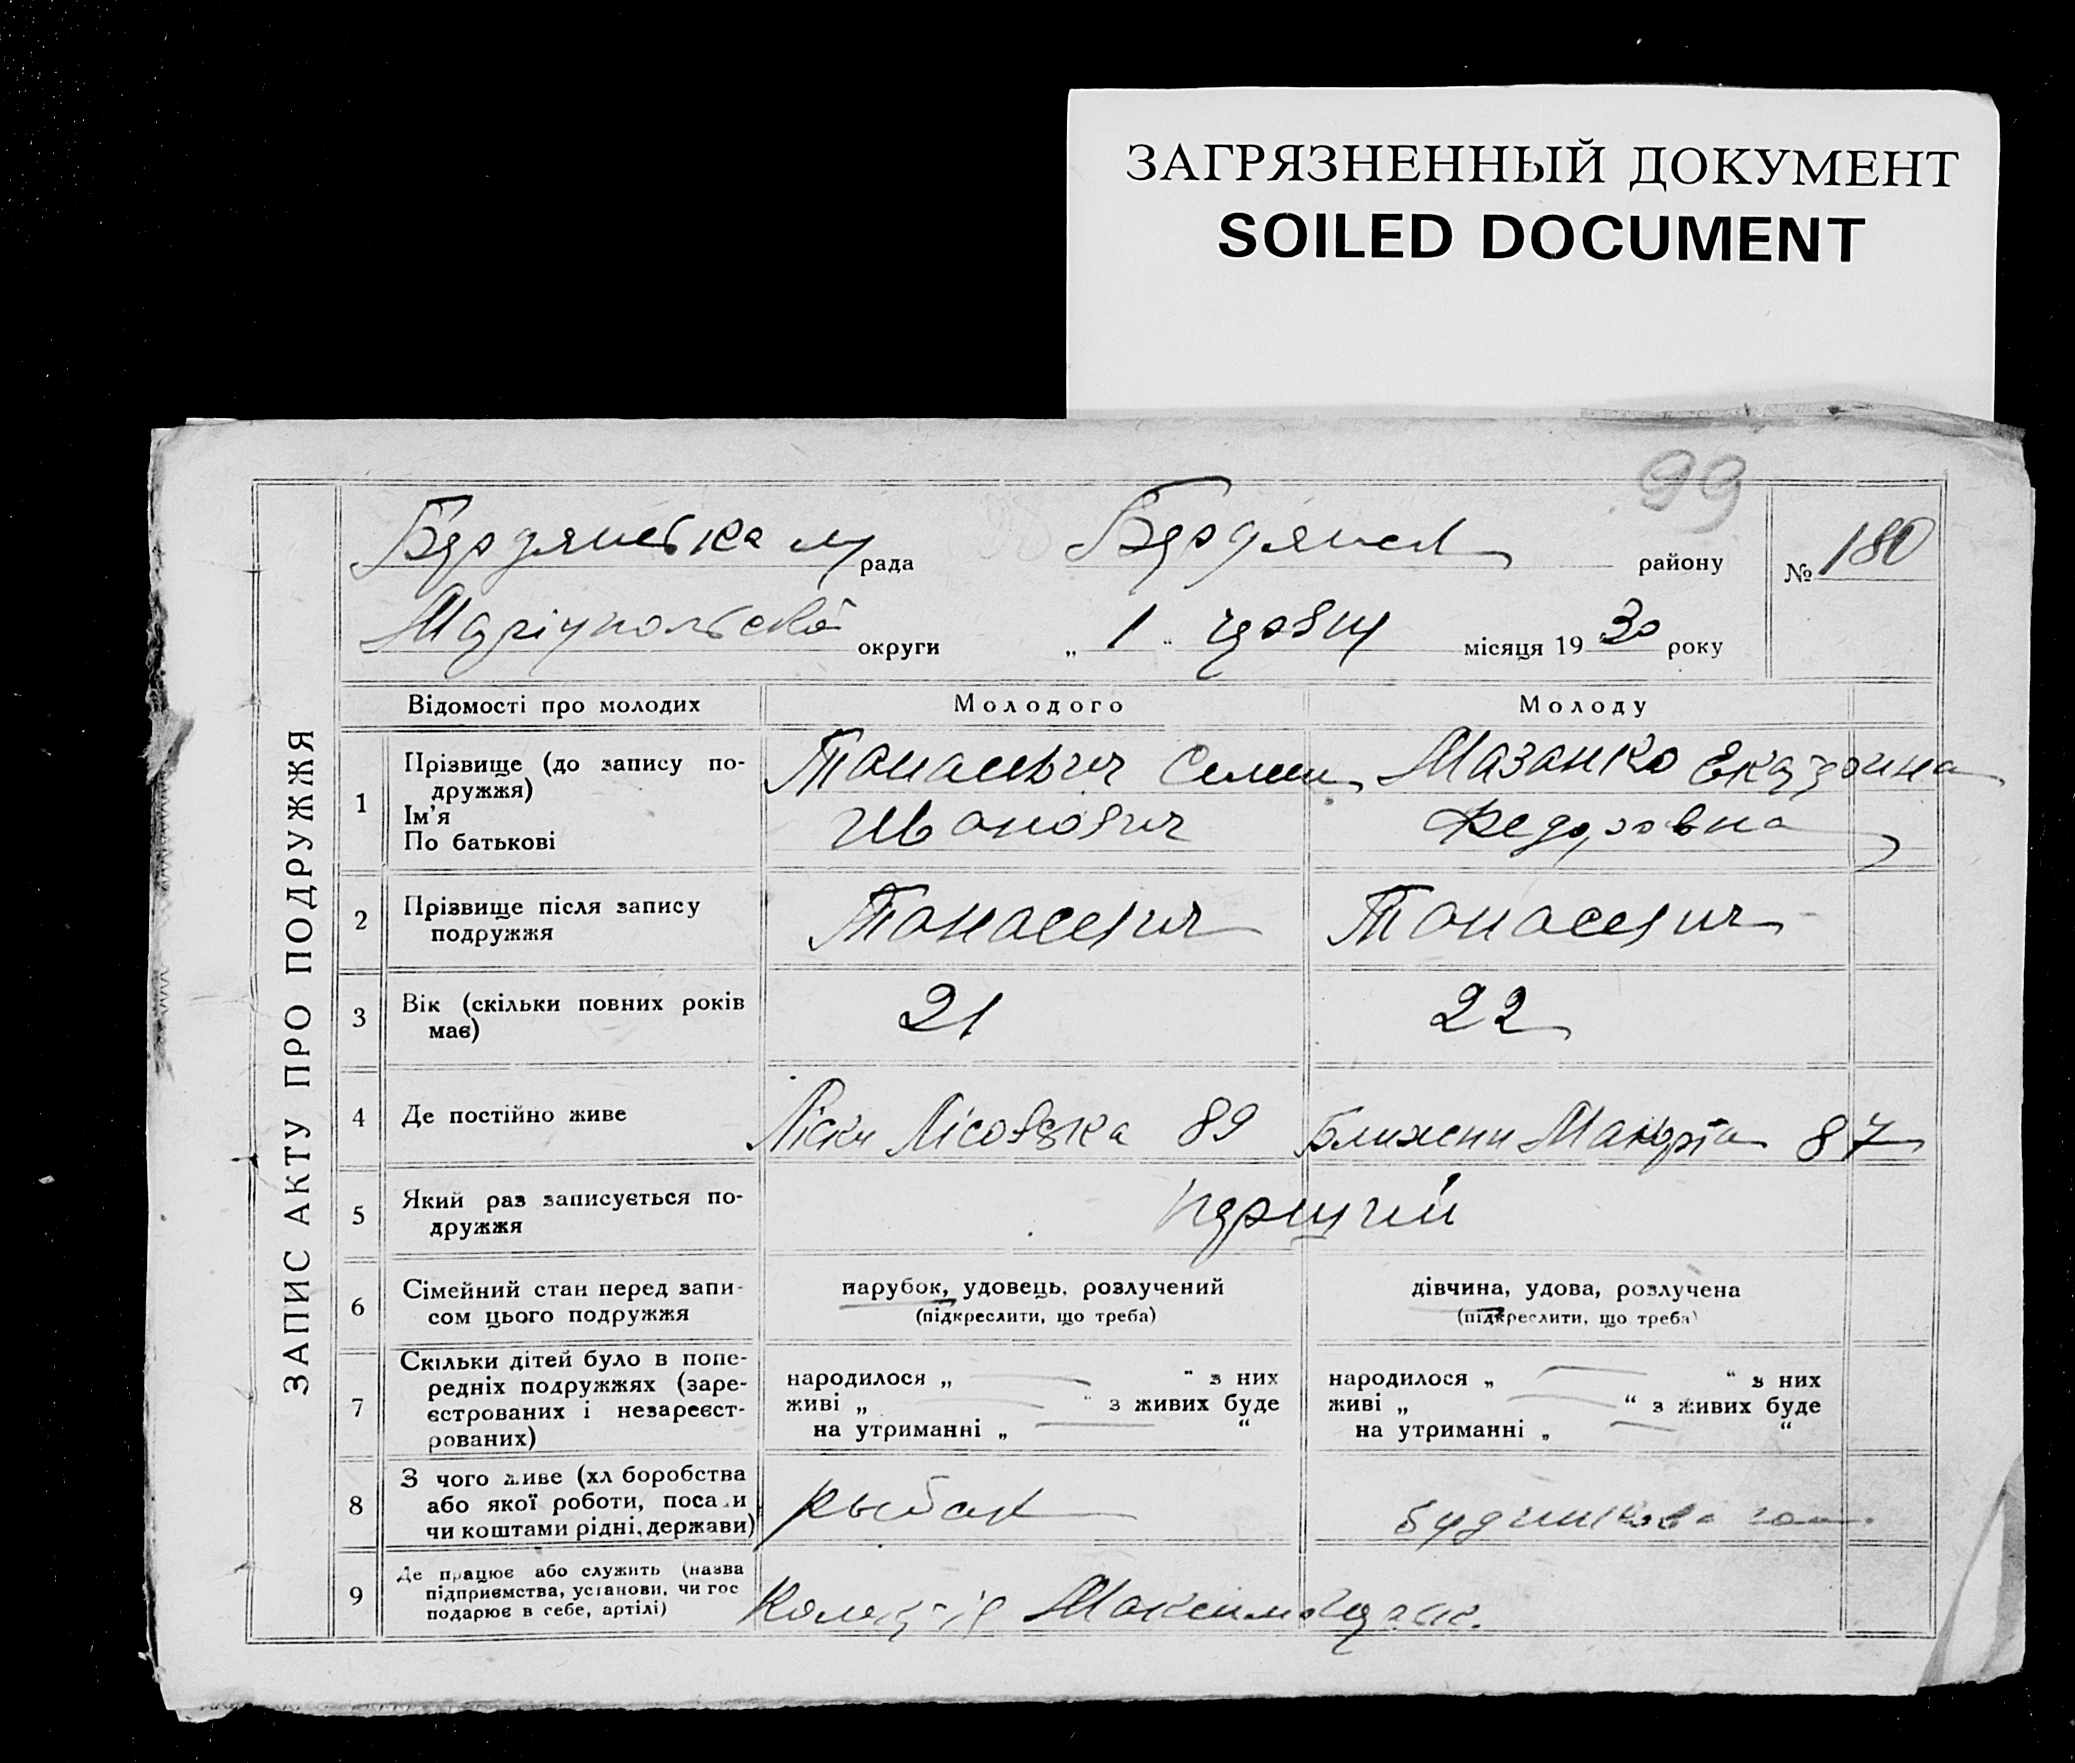 ЗАГРЯЗНЕННЫЙ ДОКУМЕНТ
SOILED DOCUMENT
99
ЗАПИС АКТУ ПРО ПОДРУЖЖЯ
Бердянська м рада Бердянськ району № 180
Маріупольської округи „ 1 “ місяця 19 30 року
Відомості про молодих Молодого Молоду
1 Прізвище (до запису по-
дружжя)
Ім'я
По батькові
Танасевич Семен
Иванович
Мазанко Екатерина
Федоровна
2 Прізвище після запису
подружжя
Танасевич Танасевич
3 Вік (скільки повних років
має)
21 22
4 Де постійно живе
Ліски Лісовська 89 Ближени 87
5 Який раз записується по-
дружжя
перший
6 Сімейний стан перед запи-
сом цього подружжя
парубок, удовець, розлучений
(підкреслити, що треба)
дівчина, удова, розлучена
(підкреслити, що треба)
7 Скільки дітей було в попе-
редніх подружжях (заре-
єстрованих і незареєст-
рованих)
народилося „ — “ з них
живі „ — “ з живих буде
на утриманні „ — “
народилося „ — “ з них
живі „ — “ з живих буде
на утриманні „ — “
8 З чого живе (хліборобства
або якої роботи, посади
чи коштами рідні, держави)
рыбак
9 Де працює або служить (назва
підприємства, установи, чи гос
подарює в себе, артілі)